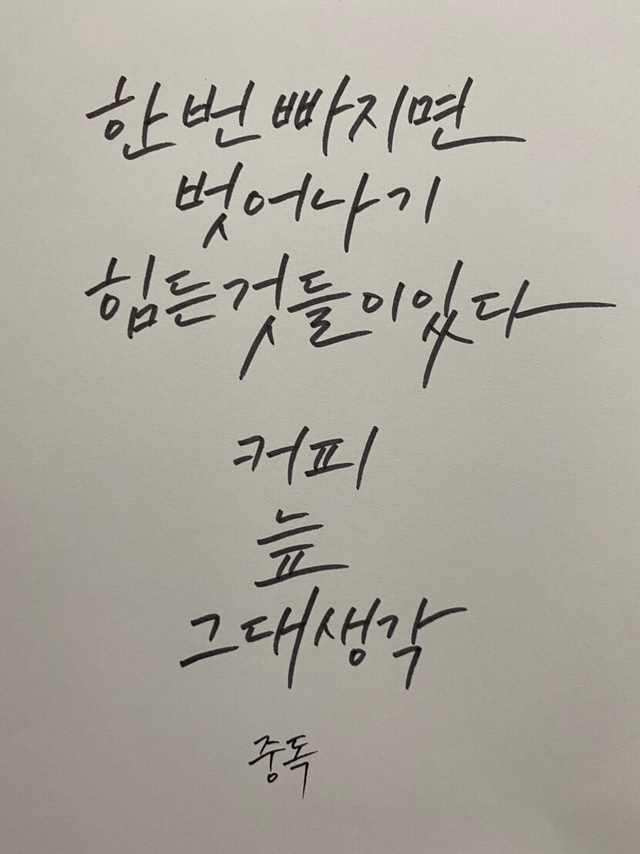 한번 빠지면
벗어나기
힘든것들이있다
커피
늪
그대생각
중독